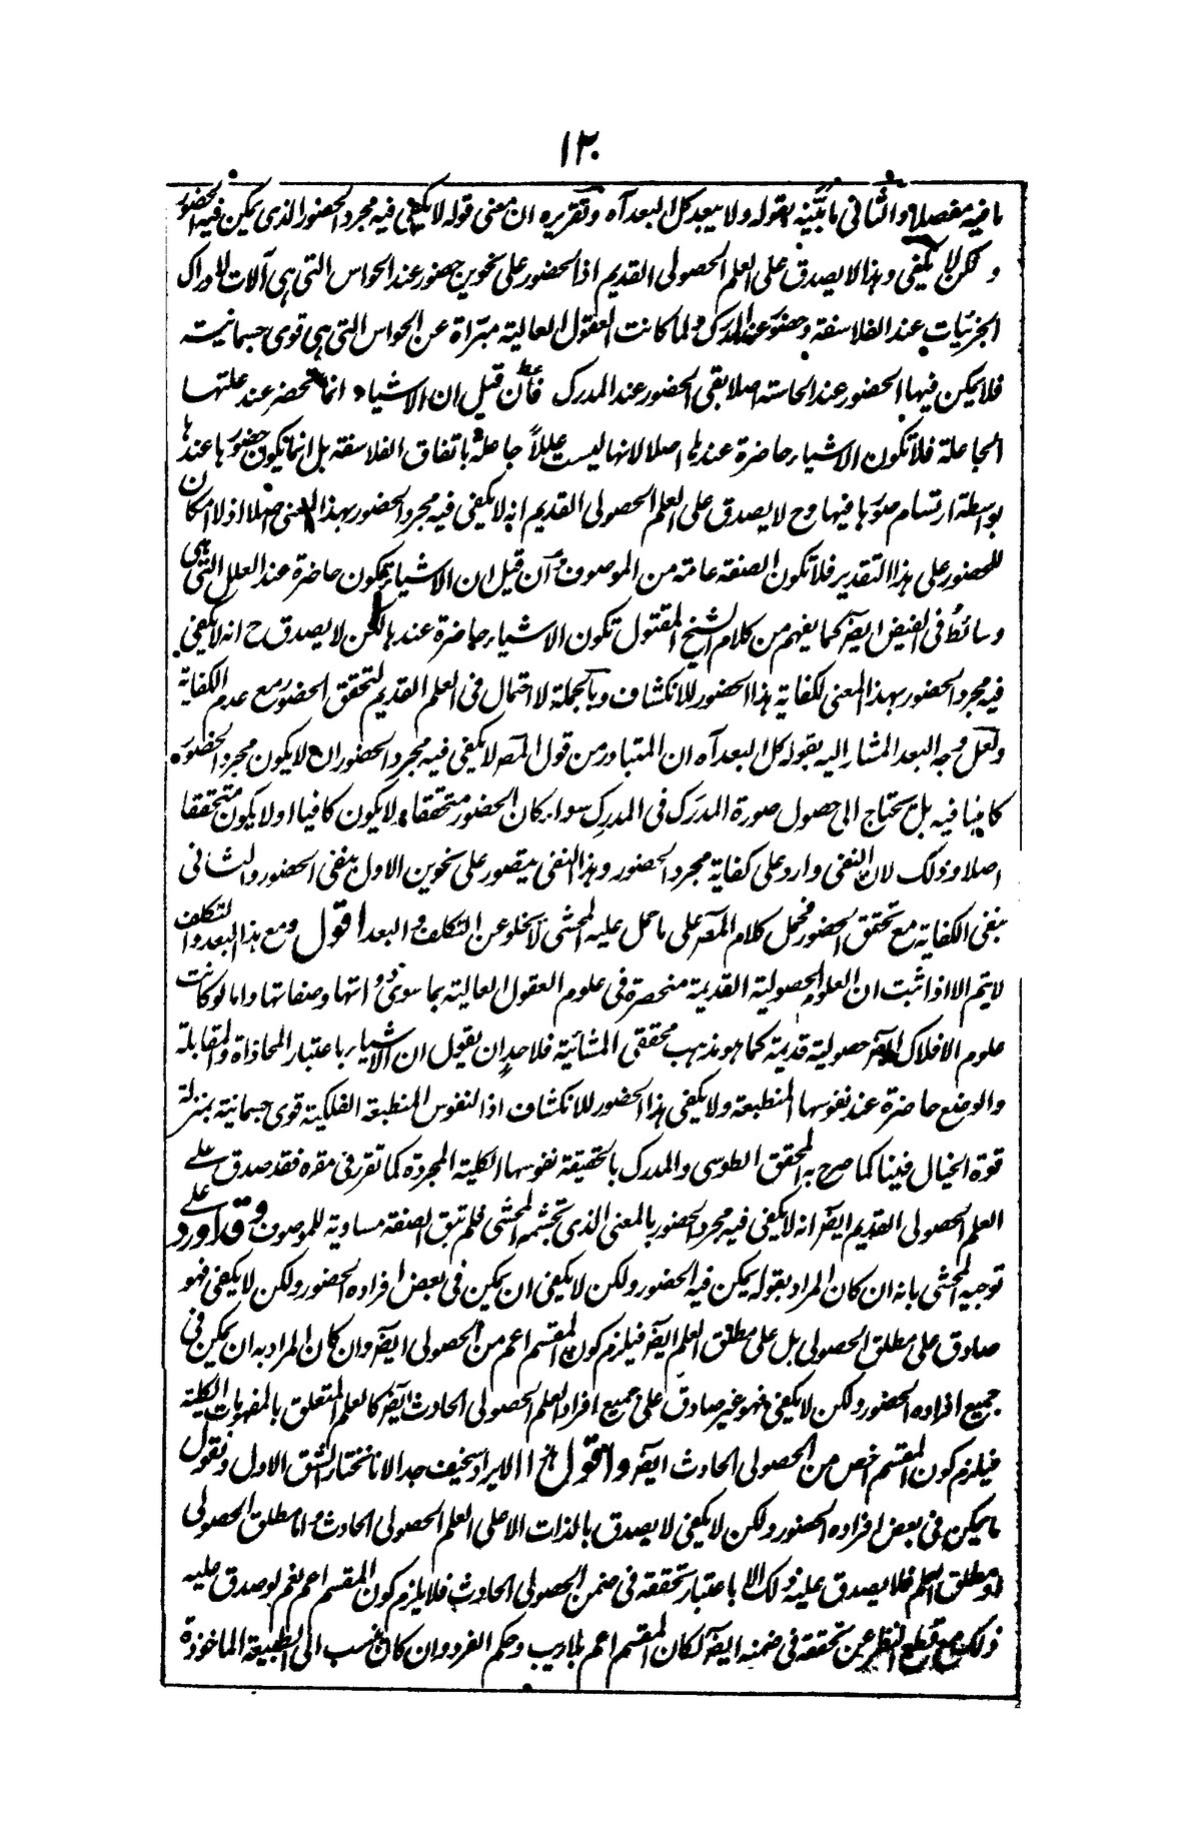 ١٣
ما فيه مفصلا والثانى ما بينه بقوله ولا يبعد كل البعد آه وتقريره ان معنى قوله لا يكفى فيه مجرد الحضور الذى يمكن فيه الحضور
ولكن لا يكفى وهذا لا يصدق على العلم الحصولى القديم اذ الحضور على نحوين حضور عند الحواس التى هى آلات لادراك
الجزئيات عند الفلاسفة وحضور عند المدرك ولما كانت العقول العالية مبراة عن الحواس التى هى قوى جسمانية
فلا يمكن فيها الحضور عند الحاسة اصلا بقى الحضور عند المدرك فان قيل ان الاشياء انما تحضر عند علتها
الجاعلة فلا تكون الاشياء حاضرة عندها اصلا لانها ليست عللا جاعلة باتفاق الفلاسفة بل انما يكون حضورها عندها
بواسطة ارتسام صورها فيها وح لا يصدق على العلم الحصولى القديم انه لا يكفى فيه مجرد الحضور بهذا المعنى اصلا اذ لا امكان
للحضور على هذا التقدير فلا تكون الصفة عامة من الموصوف وان قيل ان الاشياء تكون حاضرة عند العلل التى هى
وسائط فى الفيض ايضا كما يفهم من كلام الشيخ المقتول تكون الاشياء حاضرة عندها لكن لا يصدق ح انه لا يكفى
فيه مجرد الحضور بهذا المعنى لكفاية هذا الحضور للانكشاف وبالجملة لا احتمال فى العلم القديم لتحقق الحضور مع عدم الكفاية
ولعل وجه البعد المشار اليه بقوله كل البعد آه ان المتبادر من قول المصر لا يكفى فيه مجرد الحضور ان لا يكون مجرد الحضور
كافيا فيه بل يحتاج الى حصول صورة المدرك فى المدرك سواء كان الحضور متحققا ولا يكون كافيا او لا يكون متحققا
اصلا وذلك لان النفى وارد على كفاية مجرد الحضور وهذا النفى متصور على نحوين الاول بنفى الحضور والثانى
بنفى الكفاية مع تحقق الحضور فحمل كلام المصر على ما حمل عليه المحشى لا يخلو عن التكلف والبعد اقول ومع هذا البعد والتكلف
لا يتم الا اذا ثبت ان العلوم الحصولية القديمة منحصرة فى علوم العقول العالية بما سوى ذواتها وصفاتها واما لو كانت
علوم الافلاك ايضا حصولية قديمة كما هو مذهب محققى المشائية فلاحد ان يقول ان الاشياء باعتبار المحاذاة والمقابلة
والوضع حاضرة عند نفوسها المنطبعة ولا يكفى هذا الحضور للانكشاف اذ النفوس المنطبعة الفلكية قوى جسمانية بمنزلة
قوة الخيال فينا كما صرح به المحقق الطوسى والمدرك بالحقيقة نفوسها الكلية المجردة كما تقرر فى مقره فقد صدق على
العلم الحصولى القديم ايضا انه لا يكفى فيه مجرد الحضور بالمعنى الذى تجشمه المحشى فلم تبق الصفة مساوية للموصوف وقد اورد على
توجيه المحشى بانه ان كان المراد بقوله يمكن فيه الحضور ولكن لا يكفى ان يمكن فى بعض افراده الحضور ولكن لا يكفى فهو
صادق على مطلق الحصولى بل على مطلق العلم ايضا فيلزم كون المقسم اعم من الحصولى ايضا وان كان المراد به ان يمكن فى
جميع افراده الحضور ولكن لا يكفى فهو غير صادق على جميع افراد العلم الحصولى الحادث ايضا كالعلم المتعلق بالمفهومات الكلية
فيلزم كون المقسم اخص من الحصولى الحادث ايضا واقول هذا الايراد سخيف جدا لانا نختار الشق الاول ونقول
ما يمكن فى بعض افراده الحضور ولكن لا يكفى لا يصدق بالذات الا على العلم الحصولى الحادث واما مطلق الحصولى
ومطلق العلم فلا يصدق عليه ذلك الا باعتبار تحققه فى ضمن الحصولى الحادث فلا يلزم كون المقسم اعم نعم لو صدق عليه
ذلك مع قطع النظر عن تحققه فى ضمنه ايضا لكان المقسم اعم بلا ريب وحكم الفرد وان كان ينسب الى الطبيعة الماخوذة